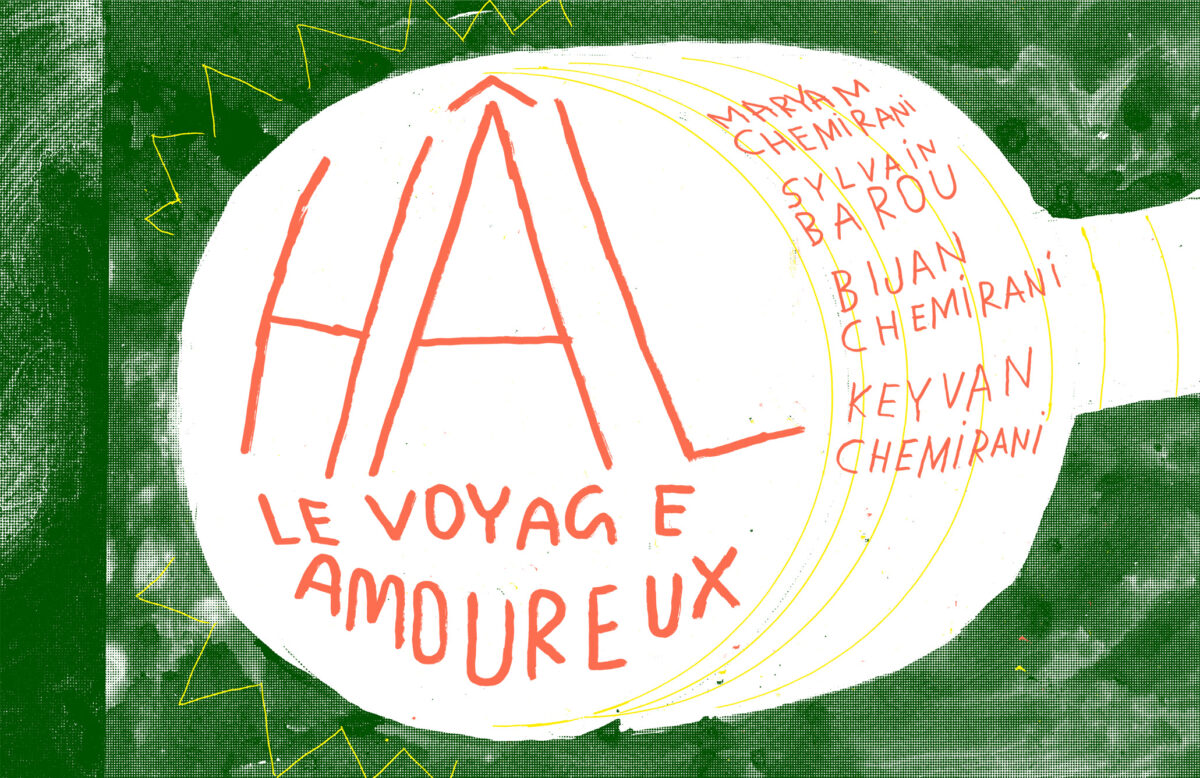 HÂL
LE VOYAGE
AMOUREUX
MARYAM
CHEMIRANI
SYLVAIN
BAROU
BIJAN
CHEMIRANI
KEYVAN
CHEMIRANI